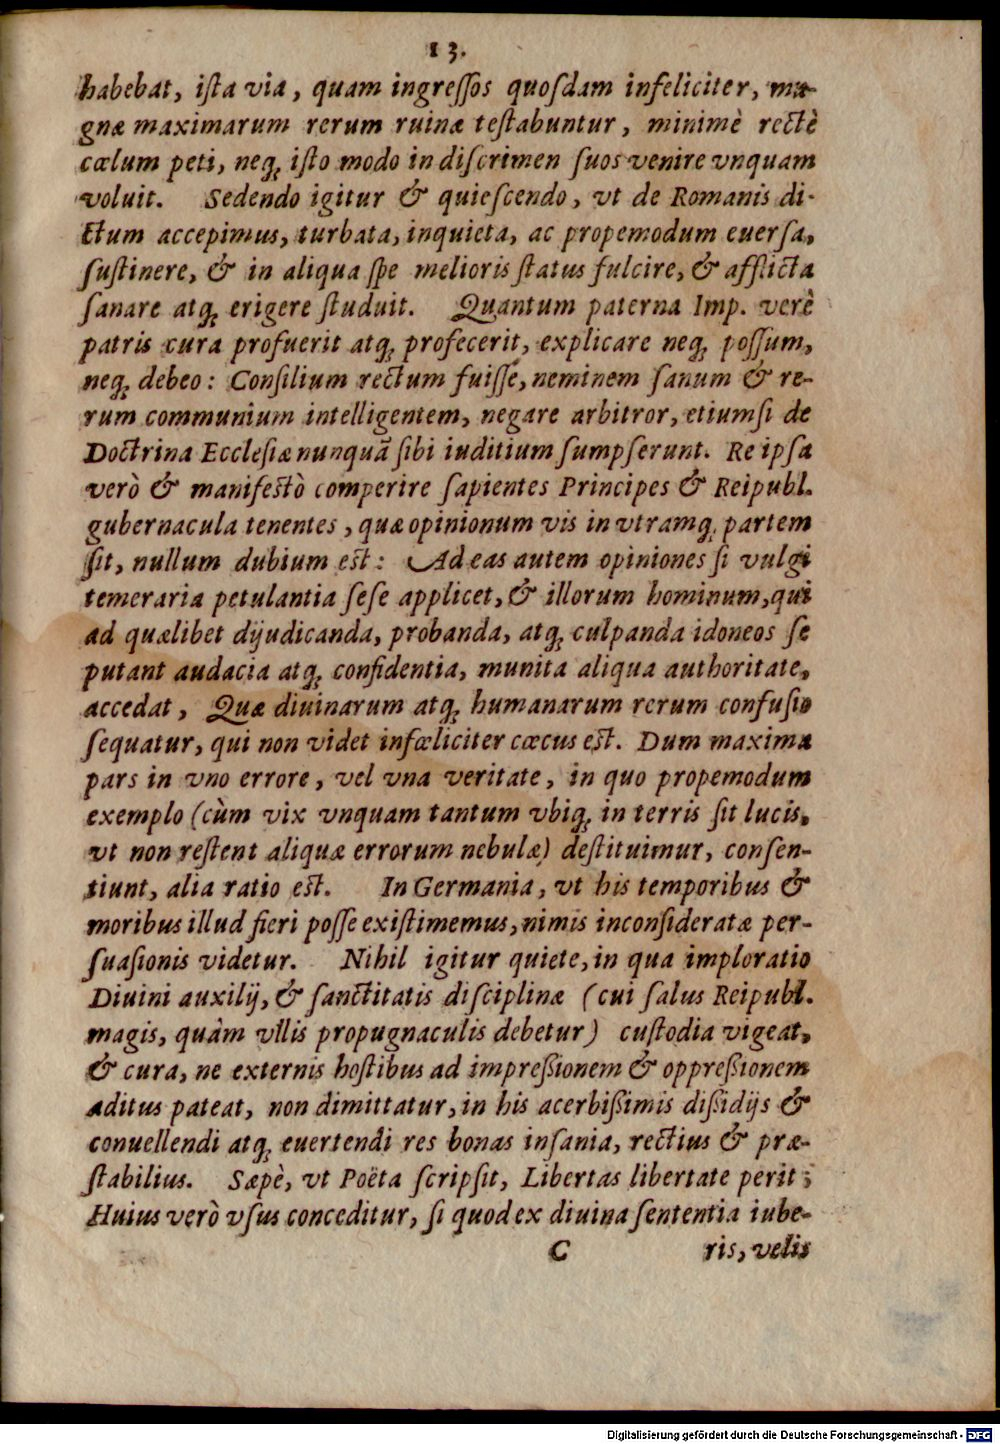 13.
habebat, iſta via, quam ingreſſos quoſdam infeliciter, ma-
gnæ maximarum rerum ruinæ teſtabuntur, minimè rectè
cœlum peti, neq; iſto modo in diſcrimen ſuos venire vnquam
voluit. Sedendo igitur & quieſcendo, vt de Romanis di-
ctum accepimus, turbata, inquieta, ac propemodum euerſa,
ſuſtinere, & in aliqua ſpe melioris ſtatus fulcire, & afflicta
ſanare atq; erigere ſtuduit. Quantum paterna Imp. verè
patris cura profuerit atq; profecerit, explicare neq; poſſum,
neq; debeo: Conſilium rectum fuiſſe, neminem ſanum & re-
rum communium intelligentem, negare arbitror, etiumſi de
Doctrina Eccleſiæ nunquã ſibi iuditium ſumpſerunt. Re ipſa
verò & manifeſtò comperire ſapientes Principes & Reipubl.
gubernacula tenentes, quæ opinionum vis in vtramq; partem
ſit, nullum dubium eſt: Ad eas autem opiniones ſi vulgi
temeraria petulantia ſeſe applicet, & illorum hominum, qui
ad quælibet dijudicanda, probanda, atq; culpanda idoneos ſe
putant audacia atq; confidentia, munita aliqua authoritate,
accedat, Quæ diuinarum atq; humanarum rerum confuſio
ſequatur, qui non videt infœliciter cœcus eſt. Dum maxima
pars in vno errore, vel vna veritate, in quo propemodum
exemplo (cùm vix vnquam tantum vbiq; in terris ſit lucis,
vt non reſtent aliquæ errorum nebulæ) deſtituimur, conſen-
tiunt, alia ratio eſt. In Germania, vt his temporibus &
moribus illud fieri poſſe exiſtimemus, nimis inconſideratæ per-
ſuaſionis videtur. Nihil igitur quiete, in qua imploratio
Diuini auxilij, & ſanctitatis diſciplinæ (cui ſalus Reipubl.
magis, quàm vllis propugnaculis debetur) cuſtodia vigeat,
& cura, ne externis hoſtibus ad impreßionem & oppreßionem
aditus pateat, non dimittatur, in his acerbißimis dißidijs &
conuellendi atq; euertendi res bonas inſania, rectius & præ-
ſtabilius. Sæpè, vt Poëta ſcripſit, Libertas libertate perit;
Huius verò vſus conceditur, ſi quod ex diuina ſententia iube-
C ris, velis
Digitalisierung gefördert durch die Deutsche Forschungsgemeinschaft - DFG